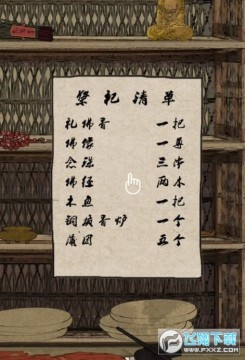 祭祀清单
礼佛香 一把
佛像 一尊
念珠 三串
佛经 两本
木鱼 一把
铜质香炉 一个
蒲团 五个
飞翔下载
www.fxxz.com